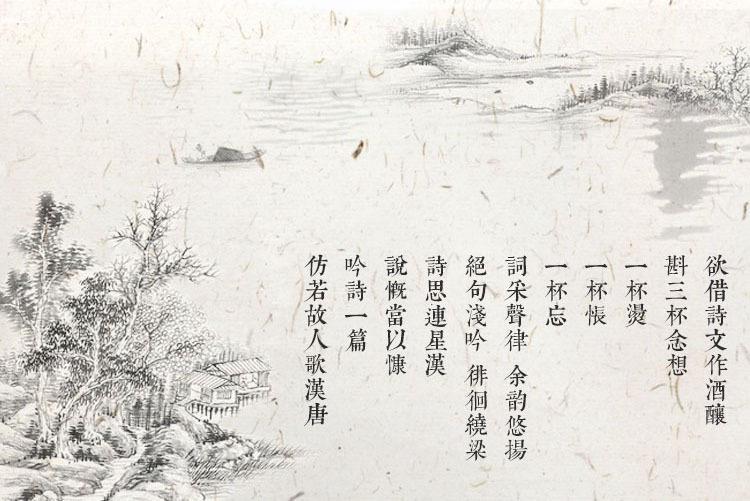 欲借詩文作酒釀
斟三杯念想
一杯燙
一杯悵
一杯忘
詞采聲律 余韵悠揚
絕句淺吟 徘徊繞梁
詩思連星漢
說慨當以慷
吟詩一篇
仿若故人歌漢唐